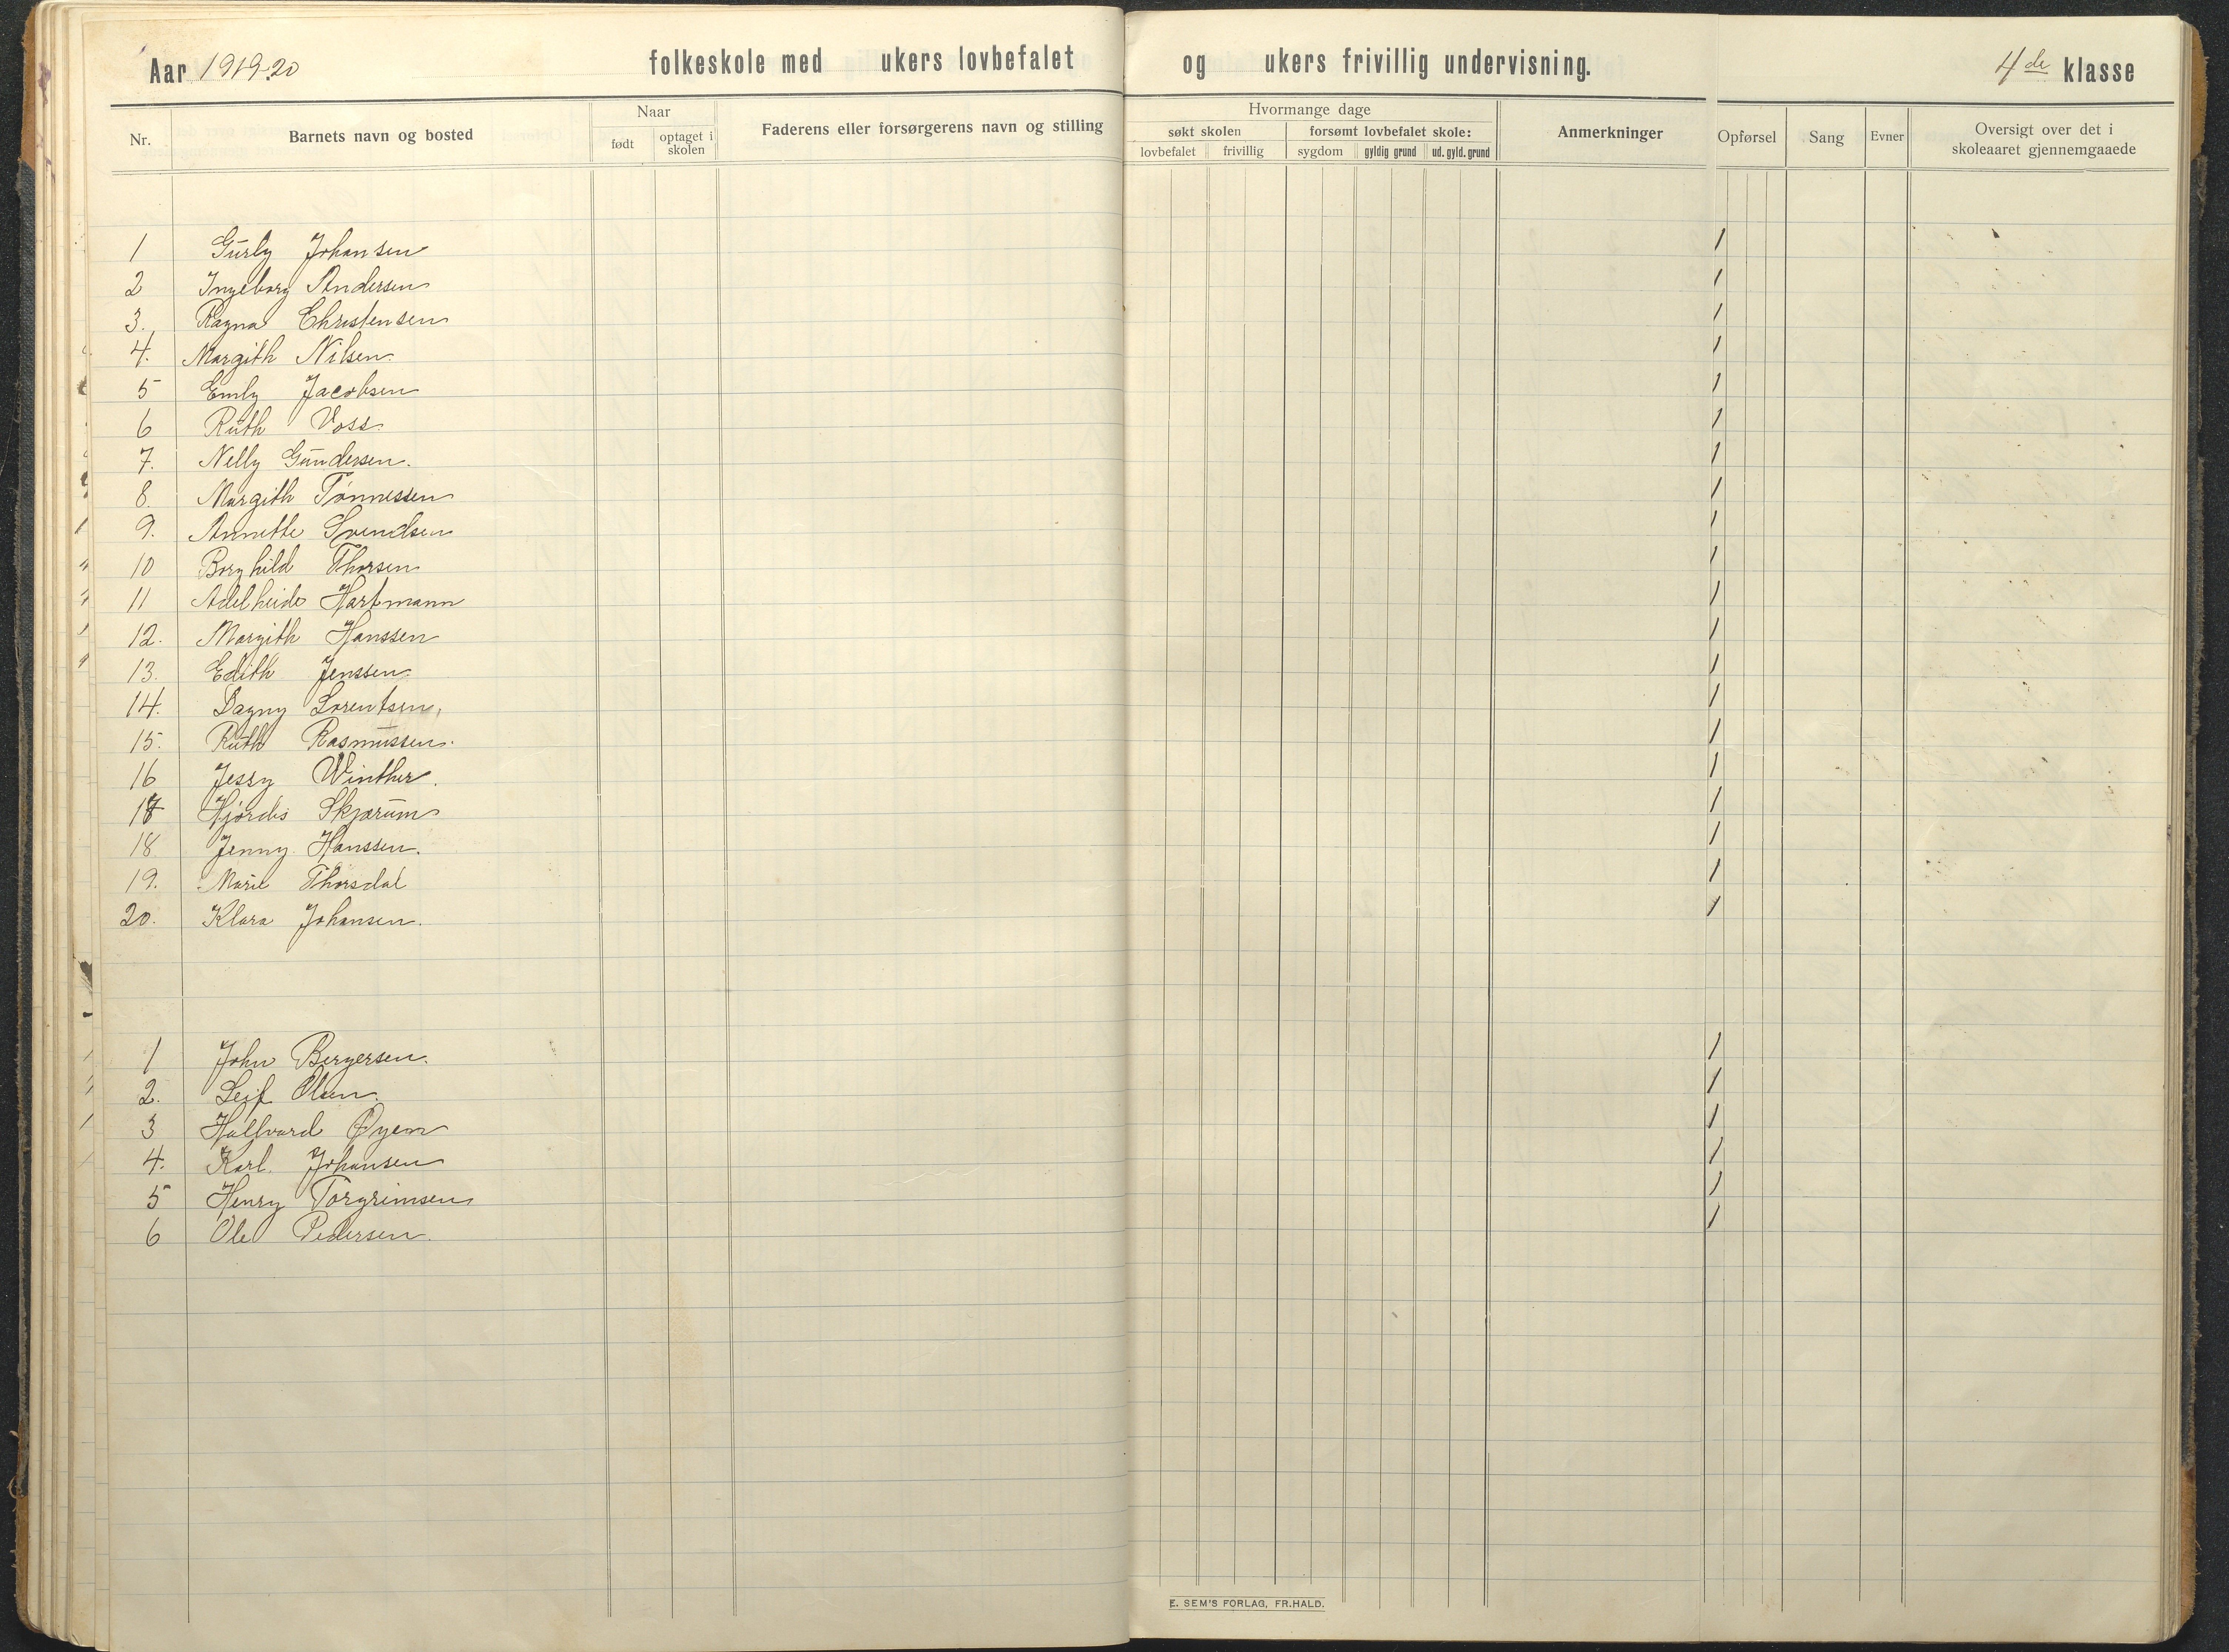 Aar 1919-20 folkeskole med ukers lovbefalet og ukers frivillig undervisning. 4de klasse
Nr. Barnets navn og bosted Naar født optaget i skolen Faderens eller forsørgerens navn og stilling Hvormange dage søkt skolen lovbefalet frivillig forsømt lovbefalet skole: sygdom gyldig grund ud. gyld. grund Anmerkninger Opførsel Sang Evner Oversigt over det i skoleaaret gjennemgaaede
1 Gurly Johansen /
2 Ingeborg Andersen /
3. Ragna Christensen /
4. Margith Nilsen. /
5 Emly Jacobsen /
6 Ruth Voss. /
7. Nelly Gundersen. /
8. Margith Tønnessen /
9. Annette Svendsen /
10 Borghild Thorsen /
11 Adelheide Hartmann /
12. Margith Hanssen /
13. Edith Jenssen. /
14. Dagny Lorentsen, /
15. Ruth Rasmussen. /
16 Jessy Winther. /
17 Hjørdis Skjærum /
18 Jenny Hanssen. /
19. Marie Thorsdal /
20. Klara Johansen. /
1 John Bergersen. /
2. Leif Olsen. /
3 Hallvard Øyen /
4. Karl. Johansen /
5 Henry Torgrimsen /
6 Ole Pedersen. /
E. SEM'S FORLAG, FR.HALD.